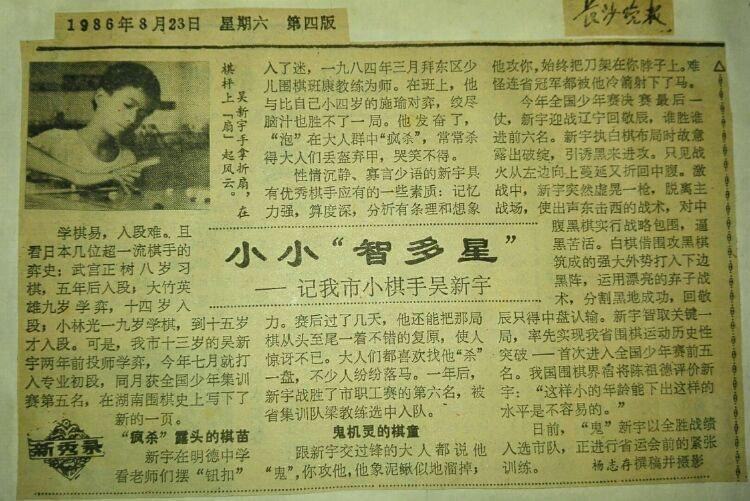 1986年8月23日 星期六 第四版
长沙晚报
吴新宇手拿折扇，在
棋枰上“扇”起风云。
学棋易，入段难。且
看日本几位超一流棋手的
弈史：武宫正树八岁习
棋，五年后入段；大竹英
雄九岁学弈，十四岁入
段；小林光一九岁学棋，到十五岁
才入段。可是，我市十三岁的吴新
宇两年前投师学弈，今年七月就打
入专业初段，同月获全国少年集训
赛第五名，在湖南围棋史上写下了
新的一页。
新秀录
“疯杀”露头的棋苗
新宇在明德中学
看老师们摆“钮扣”
入了迷，一九八四年三月拜东区少
儿围棋班康教练为师。在班上，他
与比自己小四岁的施瑜对弈，绞尽
脑汁也胜不了一局。他发奋了，
“泡”在大人群中“疯杀”，常常杀
得大人们丢盔弃甲，哭笑不得。
性情沉静、寡言少语的新宇具
有优秀棋手应有的一些素质：记忆
力强，算度深，分析有条理和想象
小小“智多星”
——记我市小棋手吴新宇
力。赛后过了几天，他还能把那局
棋从头至尾一着不错的复原，使人
惊讶不已。大人们都喜欢找他“杀”
一盘，不少人纷纷落马。一年后，
新宇战胜了市职工赛的第六名，被
省集训队梁教练选中入队。
鬼机灵的棋童
跟新宇交过锋的大人都说他
“鬼”，你攻他，他象泥鳅似地溜掉；
他攻你，始终把刀架在你脖子上。难
怪连省冠军都被他冷箭射下了马。
今年全国少年赛决赛最后一
仗，新宇迎战辽宁回敬辰，谁胜谁
进前六名。新宇执白棋布局时故意
露出破绽，引诱黑来进攻。只见战
火从左边向上蔓延又折回中腹。激
战中，新宇突然虚晃一枪，脱离主
战场，使出声东击西的战术，对中
腹黑棋实行战略包围，逼
黑苦活。白棋借围攻黑棋
筑成的强大外势打入下边
黑阵，运用漂亮的弃子战
术，分割黑地成功，回敬
辰只得中盘认输。新宇智取关键一
局，率先实现我省围棋运动历史性
突破——首次进入全国少年赛前五
名。我国围棋界宿将陈祖德评价新
宇：“这样小的年龄能下出这样的
水平是不容易的。”
日前，“鬼”新宇以全胜战绩
入选市队，正进行省运会前的紧张
训练。
杨志存撰稿并摄影